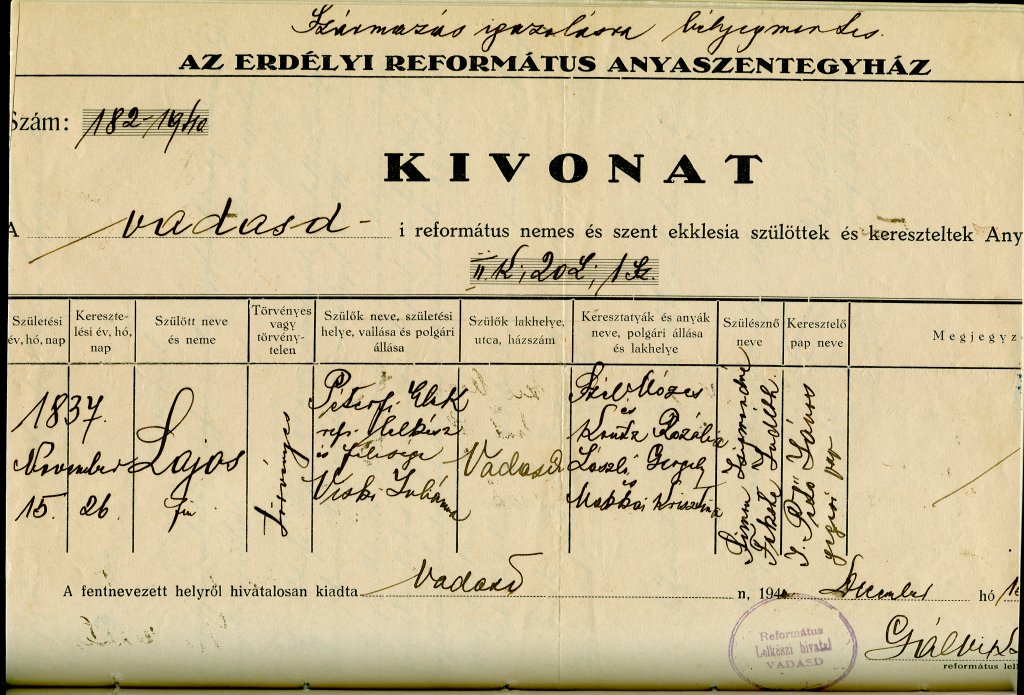 Származás igazolásra bélyegmentes.
AZ ERDÉLYI REFORMÁTUS ANYASZENTEGYHÁZ
Szám: 182-1940
KIVONAT
A Vadasd - i református nemes és szent ekklesia szülöttek és kereszteltek Any
II. K; 20 L; 1 Sz.
Születési év, hó, nap
Keresztelési év, hó, nap
Szülött neve és neme
Törvényes vagy törvénytelen
Szülők neve, születési helye, vallása és polgári állása
Szülők lakhelye, utca, házszám
Keresztatyák és anyák neve, polgári állása és lakhelye
Szülésznő neve
Keresztelő pap neve
Megjegyz
1837.
November
15. 26.
Lajos
fiu
törvényes
Péterfi Elek
ref. lelkész
és felesége
Viski Juliánna
Vadasd
Mózes
és
Rozália
László Gergely
és
Makkai Krisztina
Fekete Judith
János
A fentnevezett helyről hivatalosan kiadta Vadasd n, 1940 December hó
Református
Lelkészi hivatal
VADASD
református lel